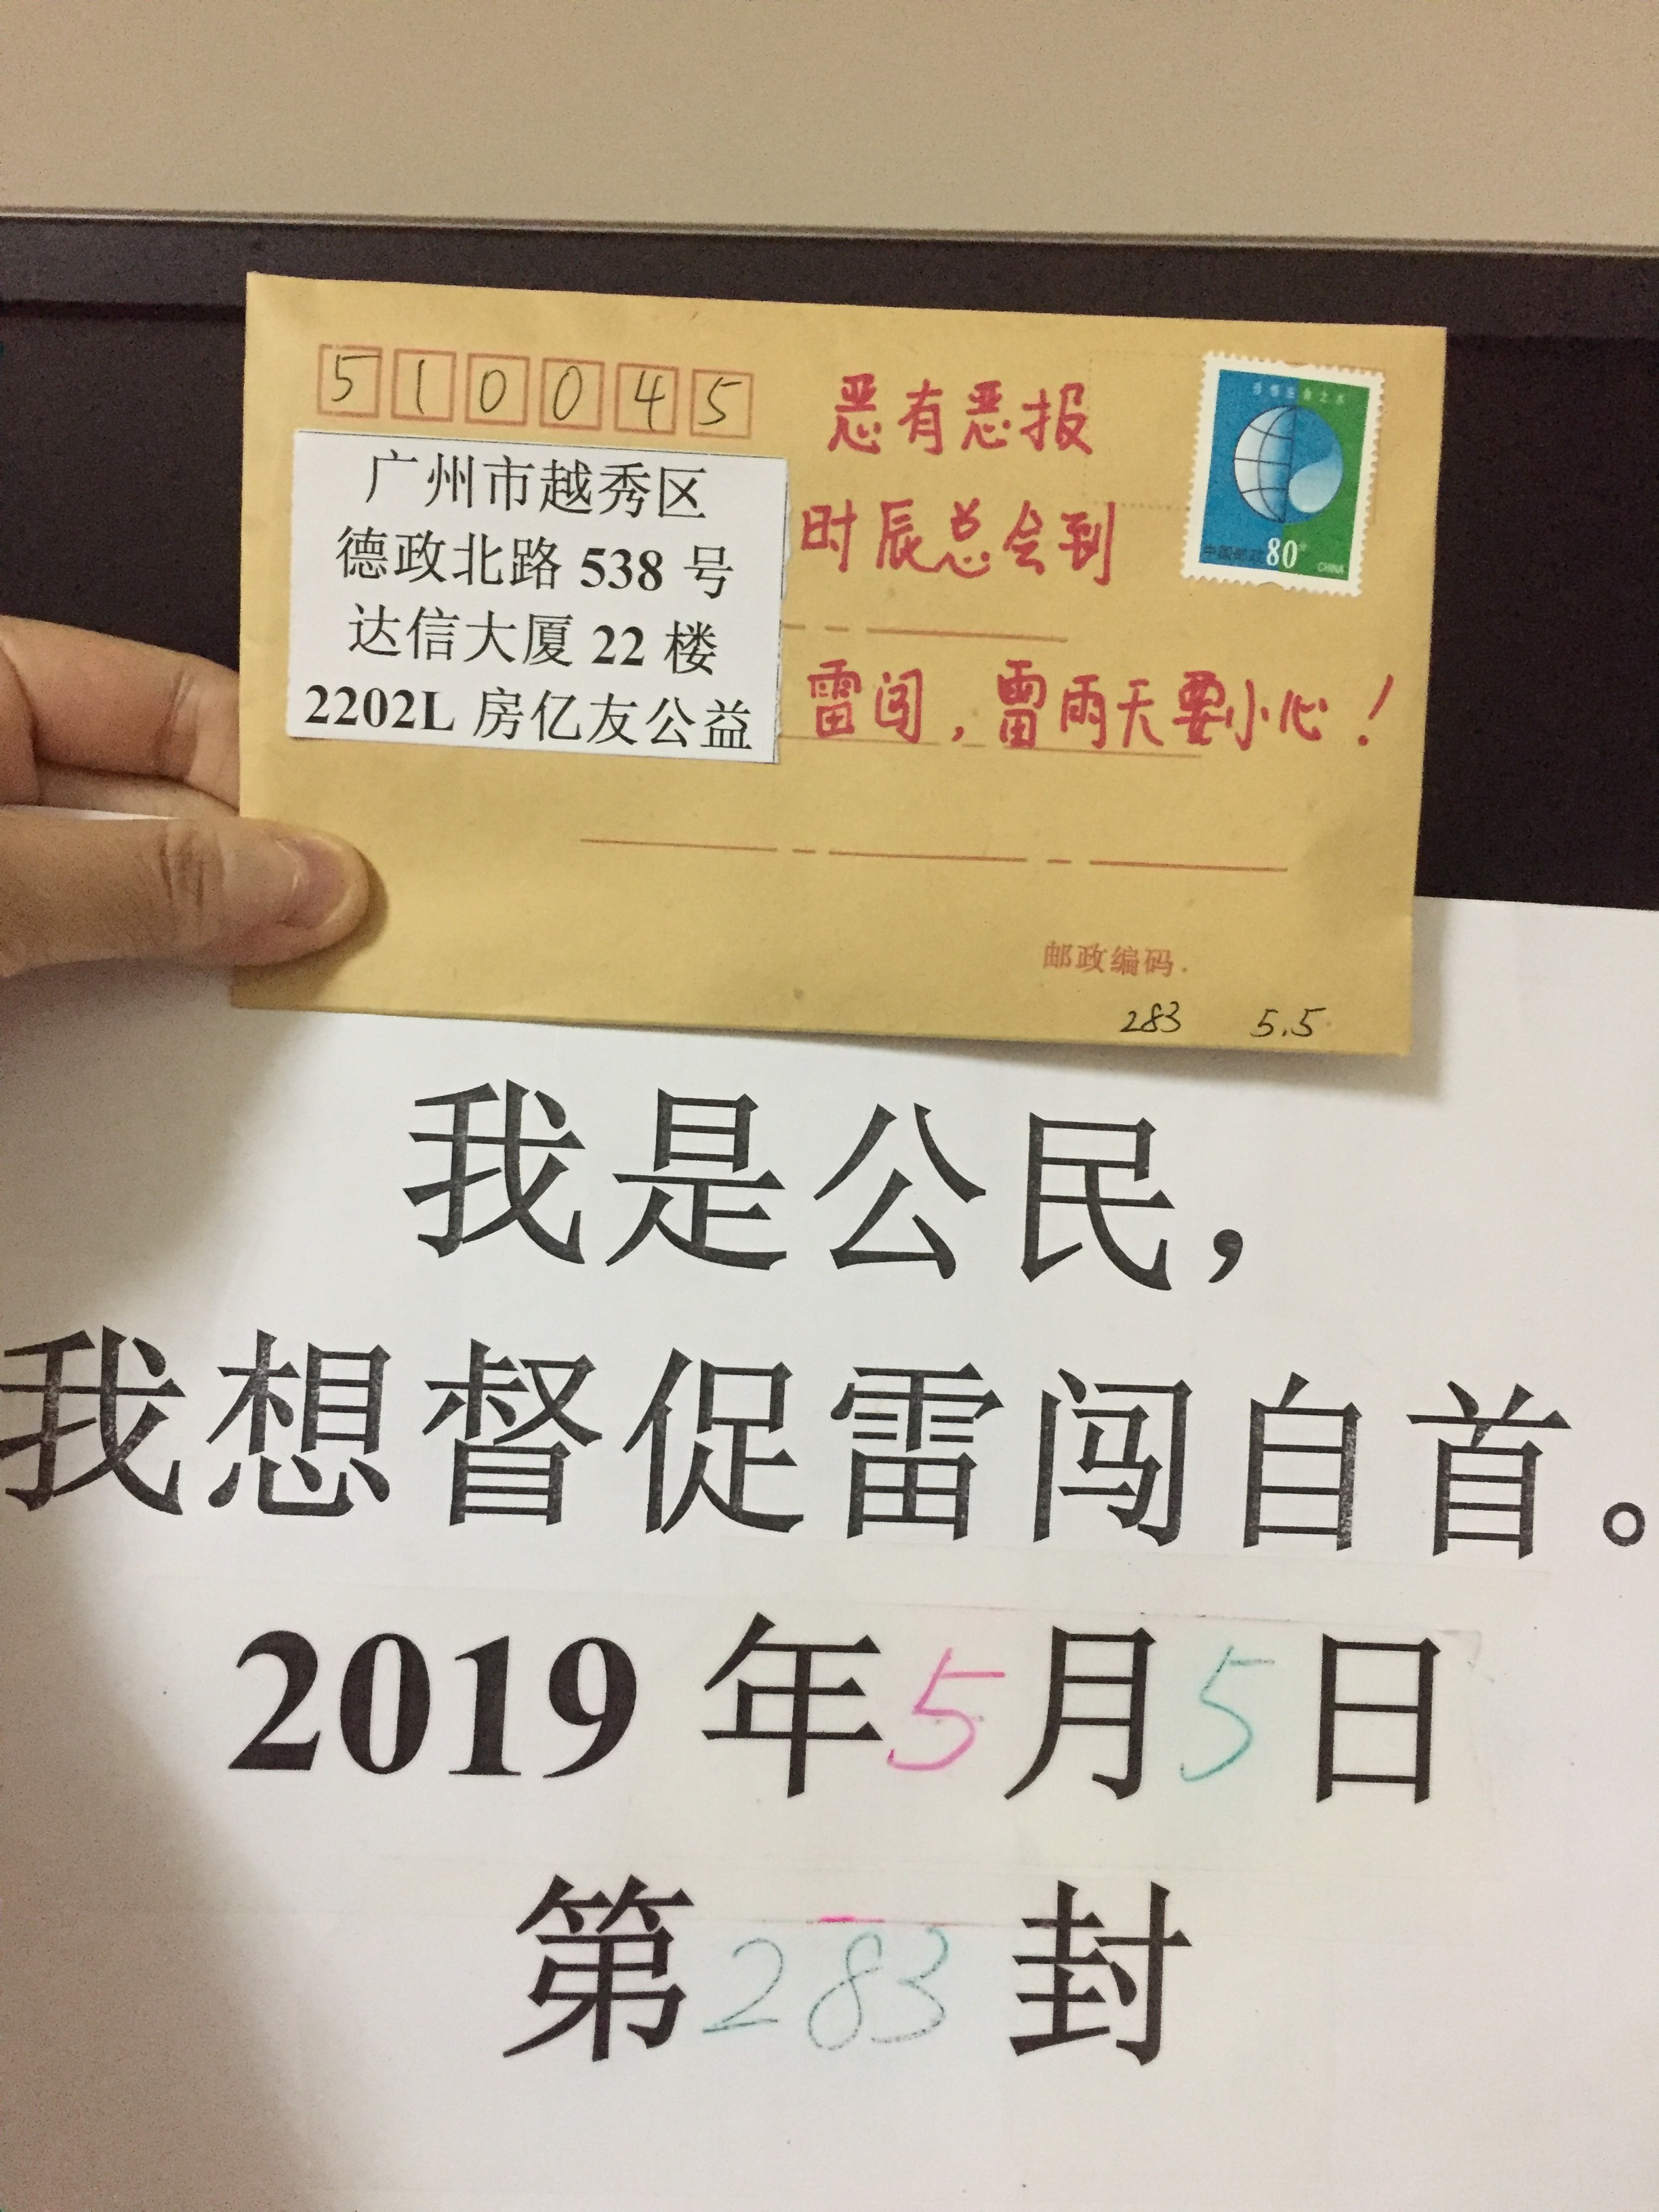 510045
广州市越秀区
德政北路 538 号
达信大厦 22 楼
2202L 房亿友公益
恶有恶报
时辰总会到
雷闯，雷雨天要小心！
中国邮政 80分
CHINA
邮政编码
283 5.5
我是公民，
我想督促雷闯自首。
2019 年 5 月 5 日
第 283 封